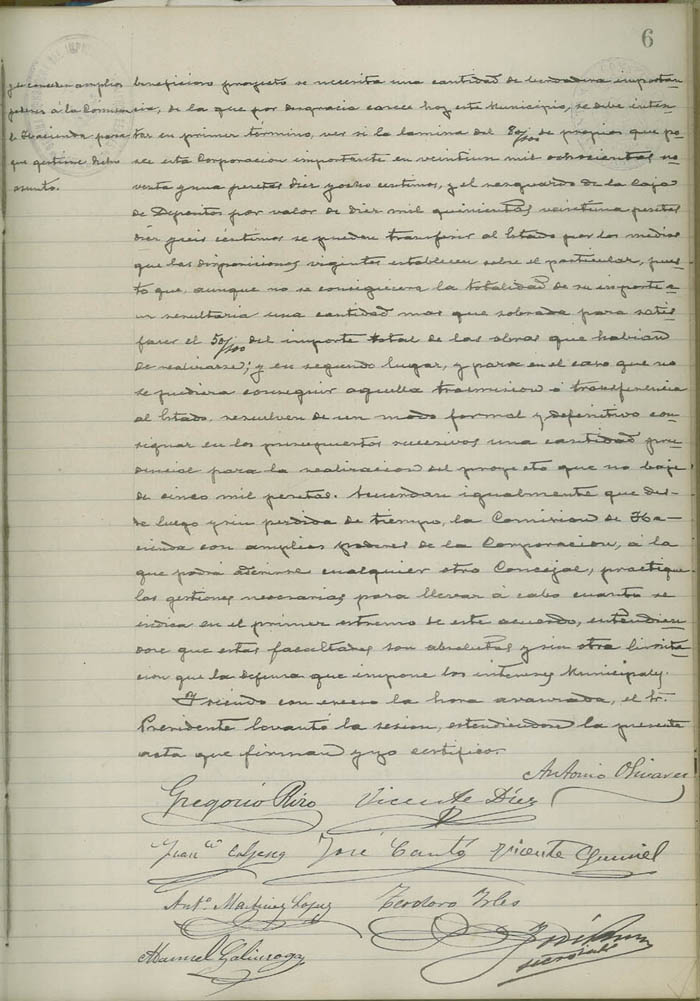 6
y se conceden amplios
poderes á la Comisión
de Hacienda para
que gestione dicho
asunto.
beneficioso proyecto se necesita una cantidad de verdadera importan-
cia, de la que por desgracia carece hoy este Municipio, se debe inten-
tar en primer termino, ver si la lamina del 80/100 de propios que po-
see esta Corporacion importante en veintiun mil ochocientas no-
venta y una pesetas diez y ocho centimos, y el resguardo de la Caja
de Depositos por valor de diez mil quinientas veintiuna pesetas
diez y seis céntimos se pueden transferir al Estado por los medios
que las disposiciones vigentes establecen sobre el particular, pues-
to que, aunque no se consiguiera la totalidad de su importe
resultaria una cantidad mas que sobrada para satis
facer el 50/100 del importe total de las obras que habian
de realizarse; y en segundo lugar, y para en el caso que no
se pudiera conseguir aquella trasmision ó transferencia
al Estado, resuelven de un modo formal y definitivo con-
signar en los presupuestos sucesivos una cantidad pru-
dencial para la realizacion del proyecto que no baje
de cinco mil pesetas. Acuerdan igualmente que des-
de luego y sin perdida de tiempo, la Comision de Ha-
cienda con amplios poderes de la Corporacion, á la
que podrá adherirse cualquier otro Concejal, practique
las gestiones necesarias para llevar á cabo cuanto se
indica en el primer extremo de este acuerdo, entendien-
dose que estas facultades son absolutas y sin otra limita-
cion que la defensa que impone los intereses Municipales.
Y siendo con exceso la hora avanzada, el Sr.
Presidente levantó la sesion, estendiendose la presente
acta que firman y yo certifico.
Antonio Olivares
Gregorio Rizo Vicente Díez
José Cantó Vicente
Antº Martinez Lopez Teodoro
Manuel Galiursoga
José
secretario